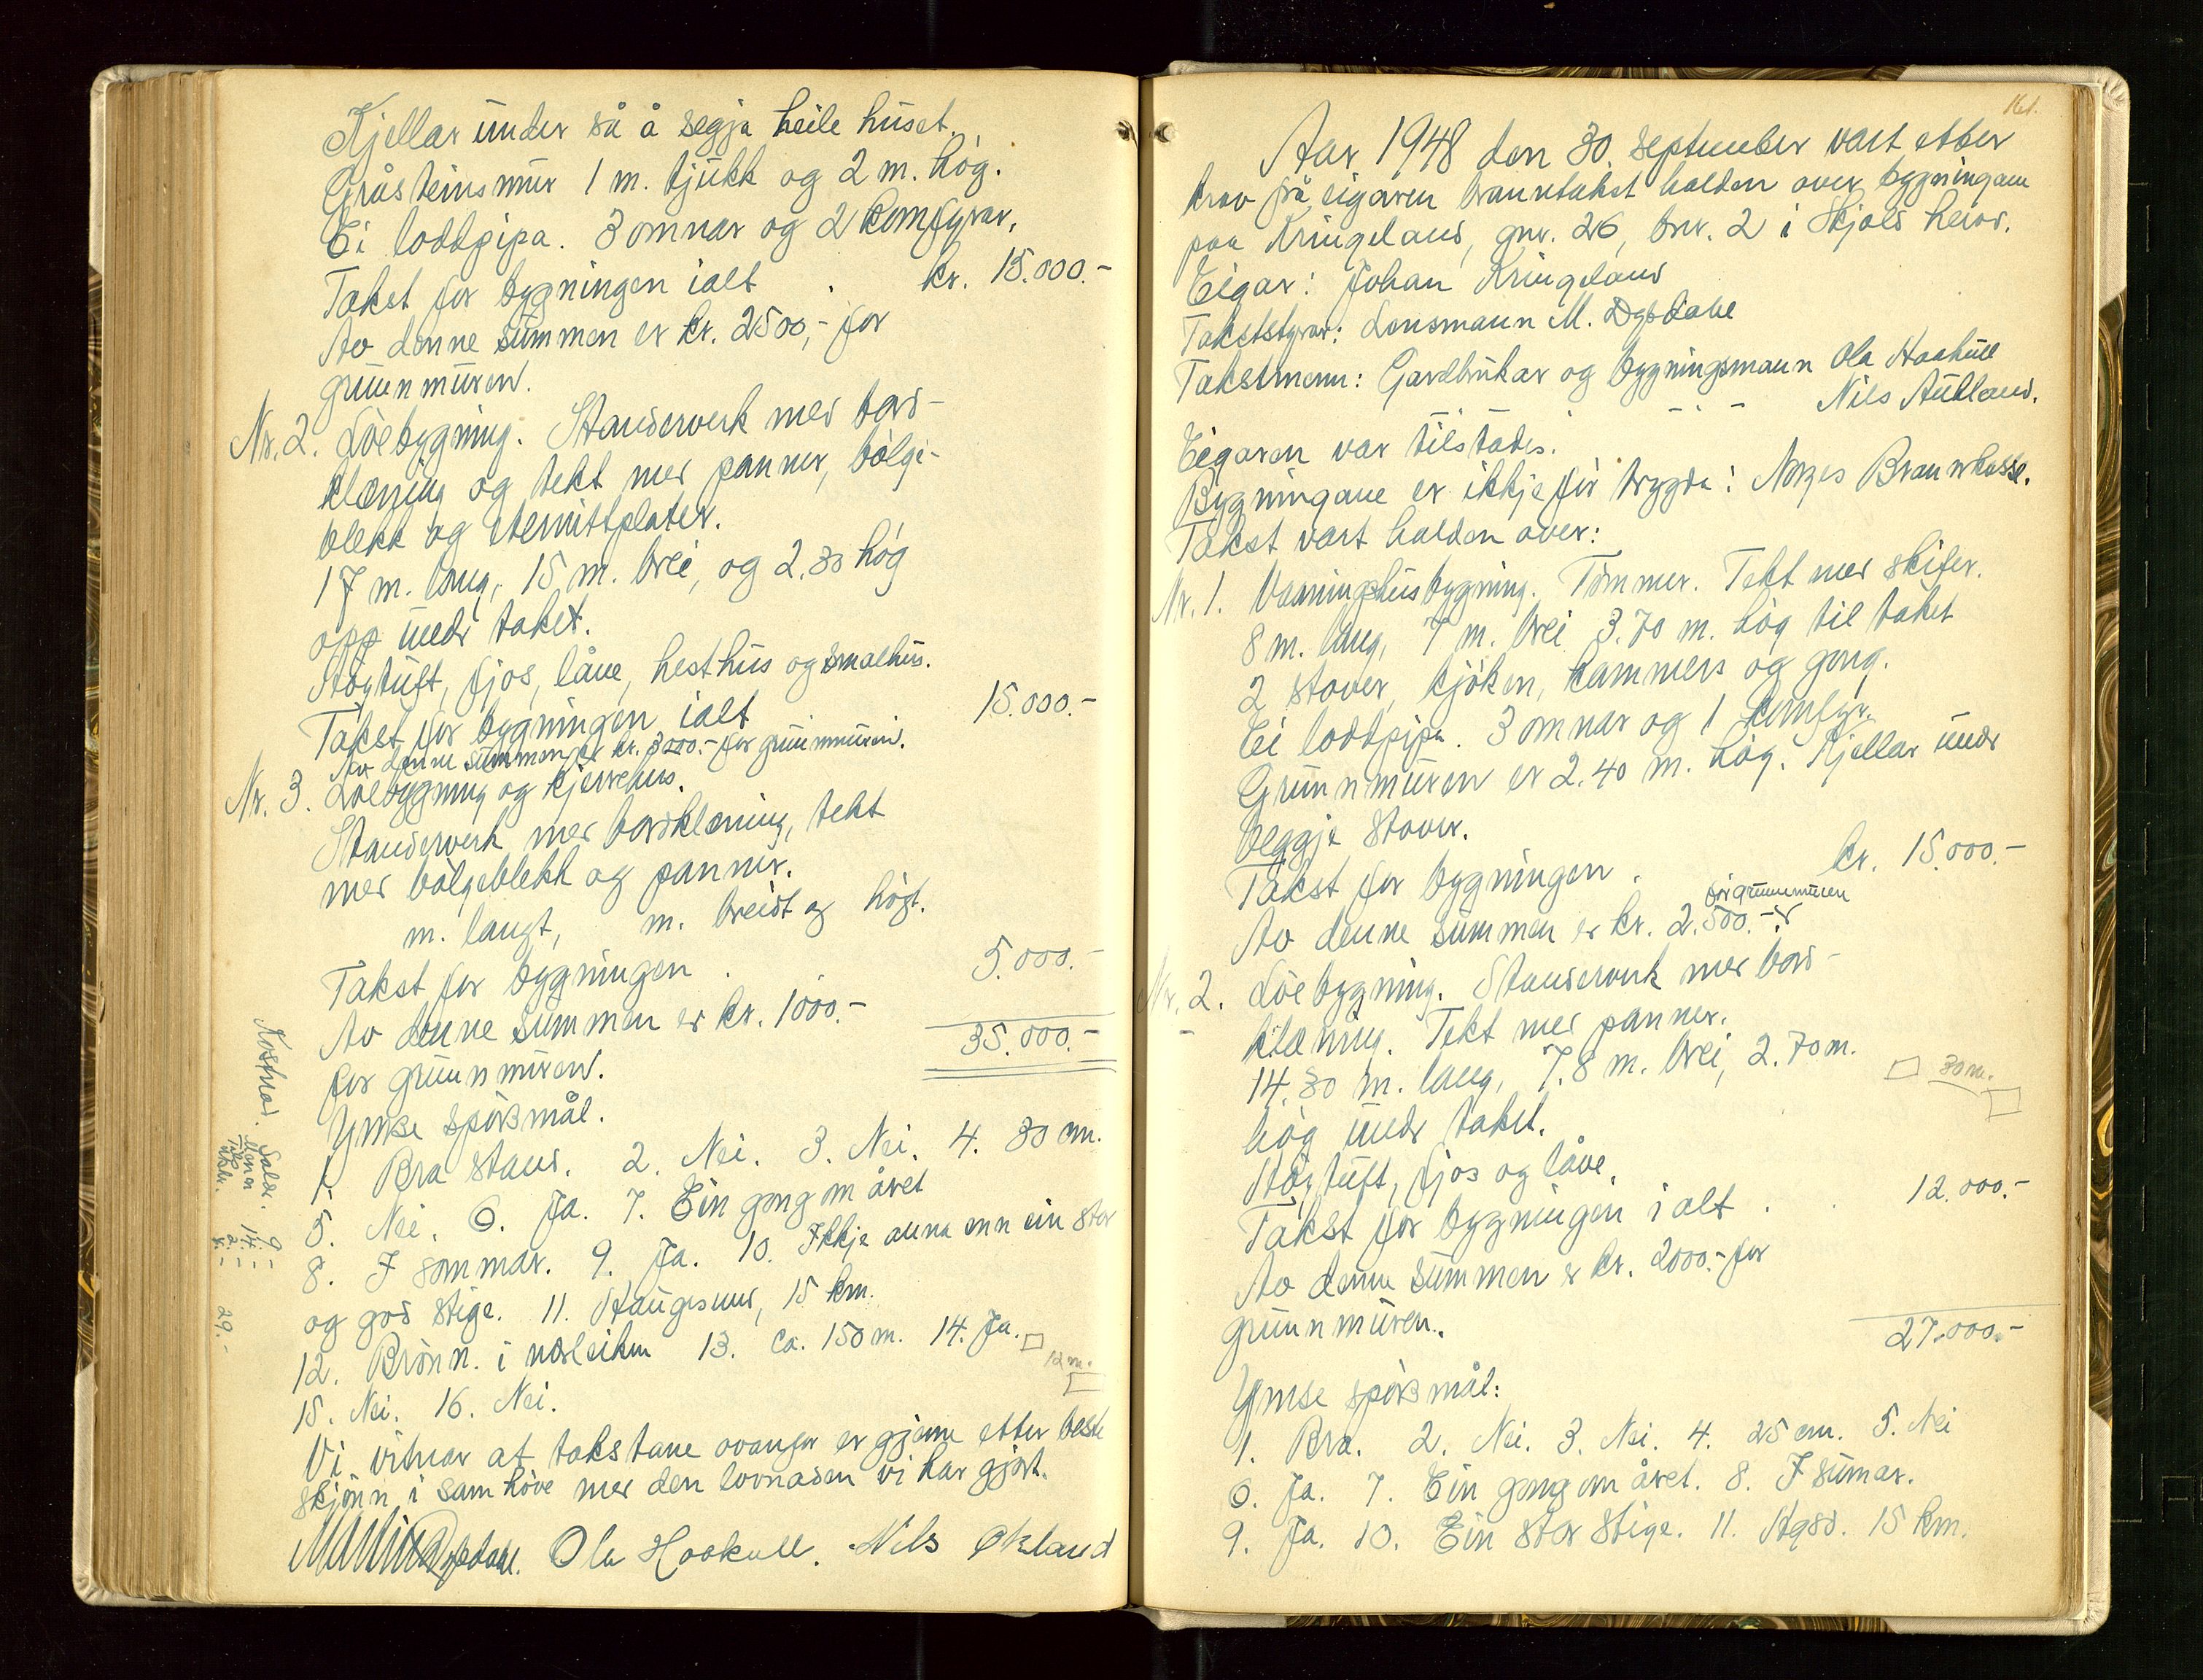 Kjellar under så å segja heile huset.
Gråsteinsmur 1 m. tjukk og 2 m. høg.
Ei loddpipa. 3 omnar og 2 komfyrar.
Takst for bygningen ialt . kr. 15.000.-
Av denne summen er kr. 2500,- for
grunnmuren.
Nr. 2. Löebygning. Standerverk med bord-
klæning og tekt med panner, bölgje-
blekk og eternittplater.
17 m. lang, 15 m. brei, og 2.30 høg
opp under taket.
Høytuft, fjos, låve, hesthus og smalhus.
Takst for bygningen ialt 15.000.-
Av denne summen er kr. 3000.- for grunnmuren.
Nr. 3. Löebygning og kjerrehus.
Standerverk med bordklæning, tekt
med bölgeblekk og panner.
m. langt, m. breidt og høgt.
Takst for bygningen . 5.000.-
Av denne summen er kr. 1000.-
for grunnmuren. 35.000.-
Ymse spörsmål.
1. Bra stand. 2. Nei. 3. Nei. 4. 30 cm.
5. Nei. 6. Ja. 7. Ein gong om året
8. I sommar. 9. Ja. 10. Ikkje anna enn ein stor
og god stige. 11. Haugesund, 15 km.
12. Brönn i nærleiken 13. ca. 150 m. 14. Ja.
12 m.
15. Nei. 16. Nei.
Vi vitnar at takstane ovanfor er gjevne etter beste
skjönn i samhöve med den lovnaden vi har gjort.
Dysdahl. Ola Haakull. Nils Økland
Kostnad. 9.-
14.-
2.-
4.-
29.-
161.
Aar 1948 den 30 september vart etter
krav frå eigaren branntakst halden over bygningane
paa Kringeland, gnr. 26, bnr. 2 i Skjold herad.
Eigar: Johan Kringeland
Takststyrar: Lensmann M. Dysdahl
Takstmenn: Gardbrukar og bygningsmann Ola Haakull
-"- -"- Nils Aukland.
Eigaren var tilstades.
Bygningane er ikkje för trygda i Norges Brannkasse.
Takst vart halden over:
Nr. 1. Vaaningshusbygning. Tömmer. Tekt med skifer.
8 m. lang, 7 m. brei 3.70 m. høg til taket
2 stover, kjöken, kammers og gang.
Ei loddpipa. 3 omnar og 1 komfyr.
Grunnmuren er 2.40 m. høg. Kjellar under
beggje stover.
Takst for bygningen . kr. 15.000.-
for grunnmuren
Av denne summen er kr. 2.500.-
Nr. 2. Löebygning. Standerverk med bord-
klæning. Tekt med panner.
14.30 m. lang, 7.8 m. brei, 2.70 m.
30 m.
høg under taket.
Høytuft, fjos og låve.
Takst for bygningen ialt . . 12.000.-
Av denne summen er kr. 2000.- for
grunnmuren. 27.000.-
Ymse spörsmål:
1. Bra. 2. Nei. 3. Nei. 4. 25 cm. 5. Nei
6. Ja. 7. Ein gong om året. 8. I sumar.
9. Ja. 10. Ein stor stige. 11. Hgsd. 15 km.